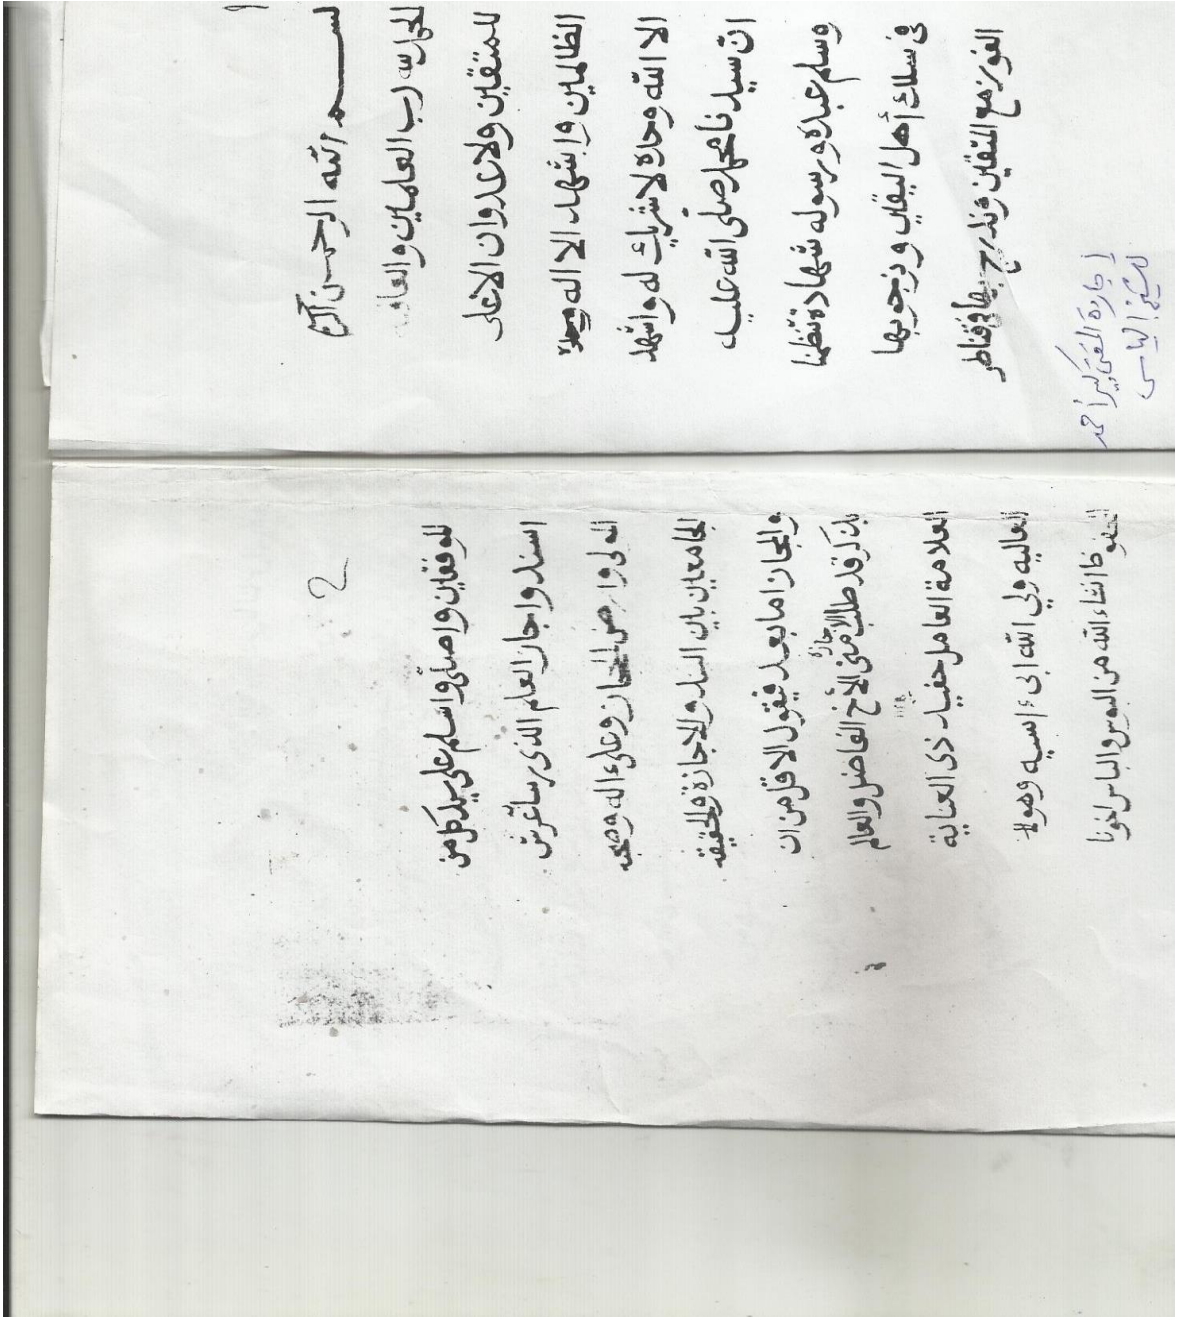 بسم الله الرحمن الرحيم
الحمد لله رب العلمين والعاقبة
للمتقين ولا عدوان الا على
الظالمين واشهد الا اله
الا الله وحده لا شريك له واشهد
ان سيدنا محمد صلى الله عليه
وسلم عبده ورسوله شهادة تنظمنا
في سلك أهل اليقين ونرجو بها
الفوز مع المتقين وندرج بها في قناطر
إجازة المفتي كبير أحمد
للشيخ إلياس
2
للموفقين واصلي واسلم على سيد كل من
اسند واجاز العلم الذي
المولى وارض وعلى ءاله وصحبه
الجامعين بين السند والاجازة والحقيقة
والمجاز اما بعد فيقول الاقل من ان
يذكر قد طلب الاجازة مني الأخ الفاضل والعالم
العلامة العامل حفيد ذي العناية
العاليه ولي الله ابيء اسيه وهو
المحفوظ انشاء الله من البوس والباس اخونا